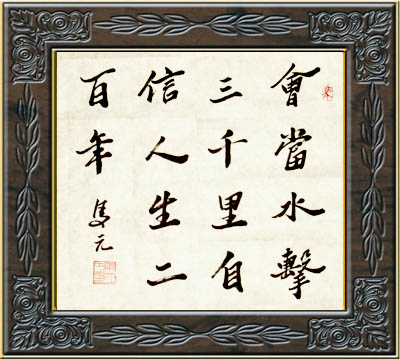 會當水擊
三千里自
信人生二
百年
元